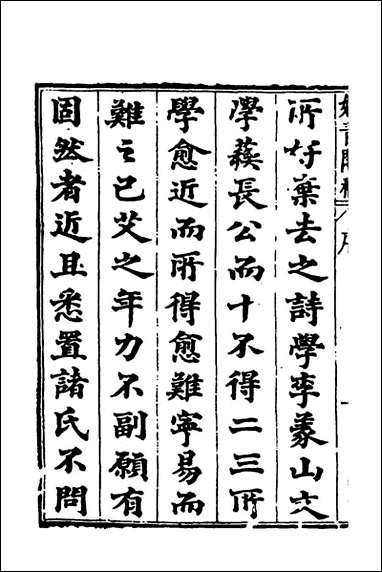 所好棄去之詩學李義山文
學蘇長公而十不得二三所
學愈近而所得愈難寧易而
難之已艾之年力不副願有
固然者近且悉置諸氏不問